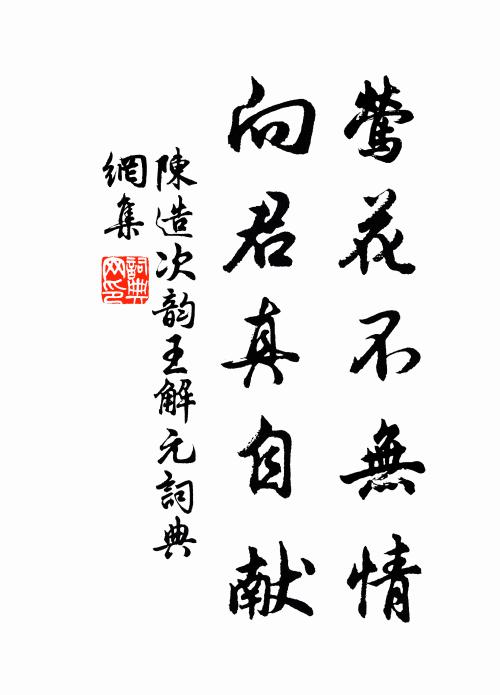 鶯花不無情
向君真自献
陳造次韵王解元詞典
網集
詞典網印